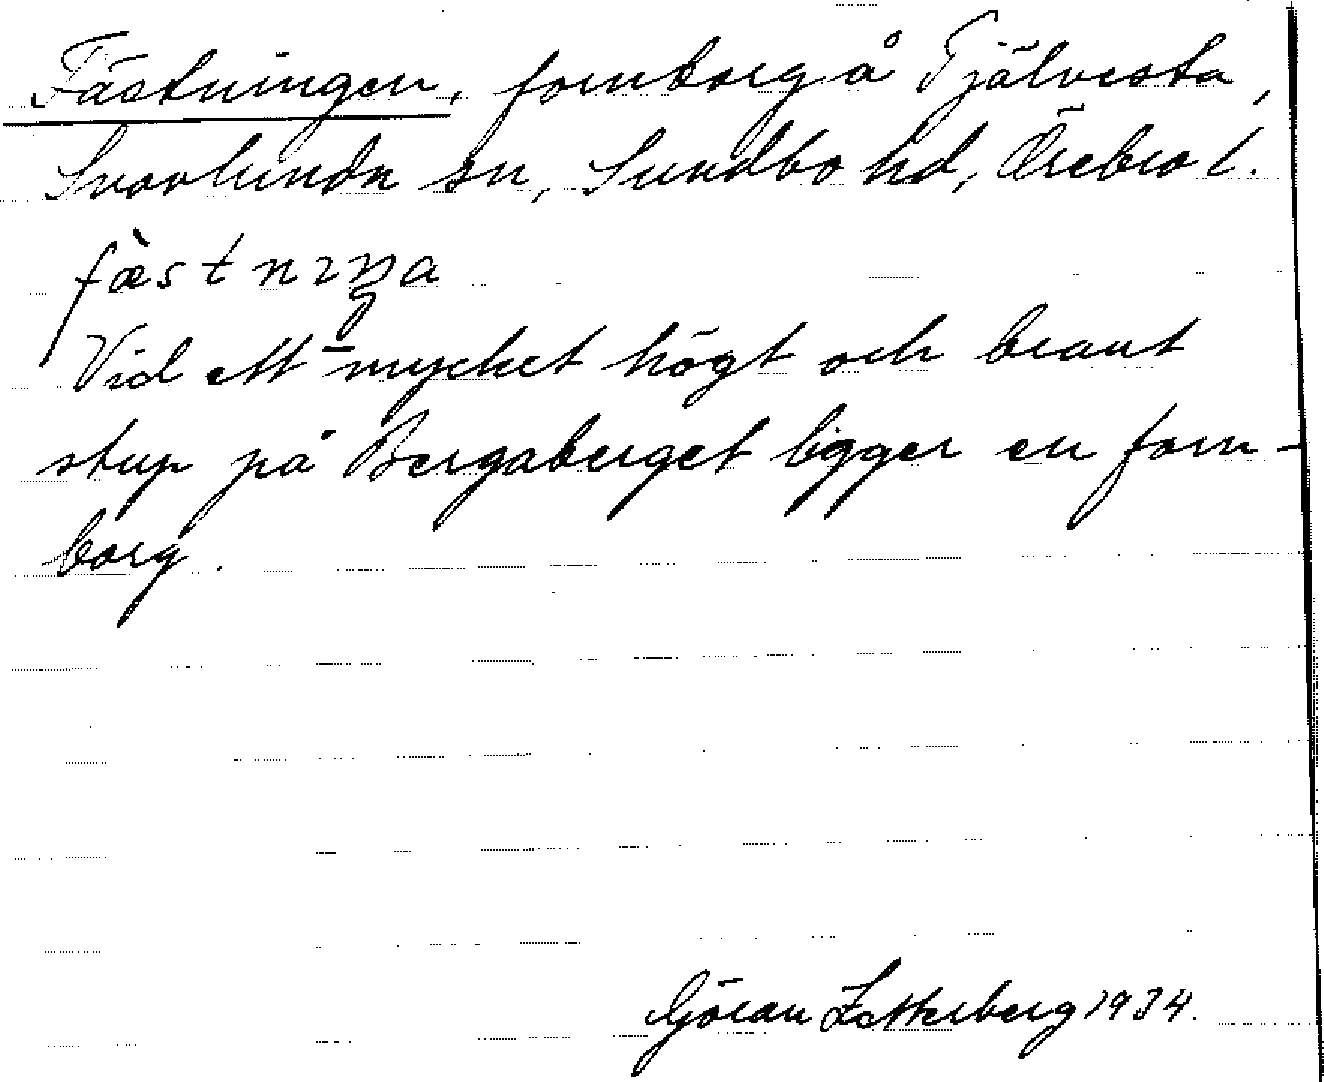 Fästningen, fornborg å Tjälvesta,
Snavlunda sn, Sundbo hd, Örebro l.
fæ̀stnıŋa
Vid ett mycket högt och brant
stup på Bergaberget ligger en forn-
borg.
Göran Zetterberg 1934.